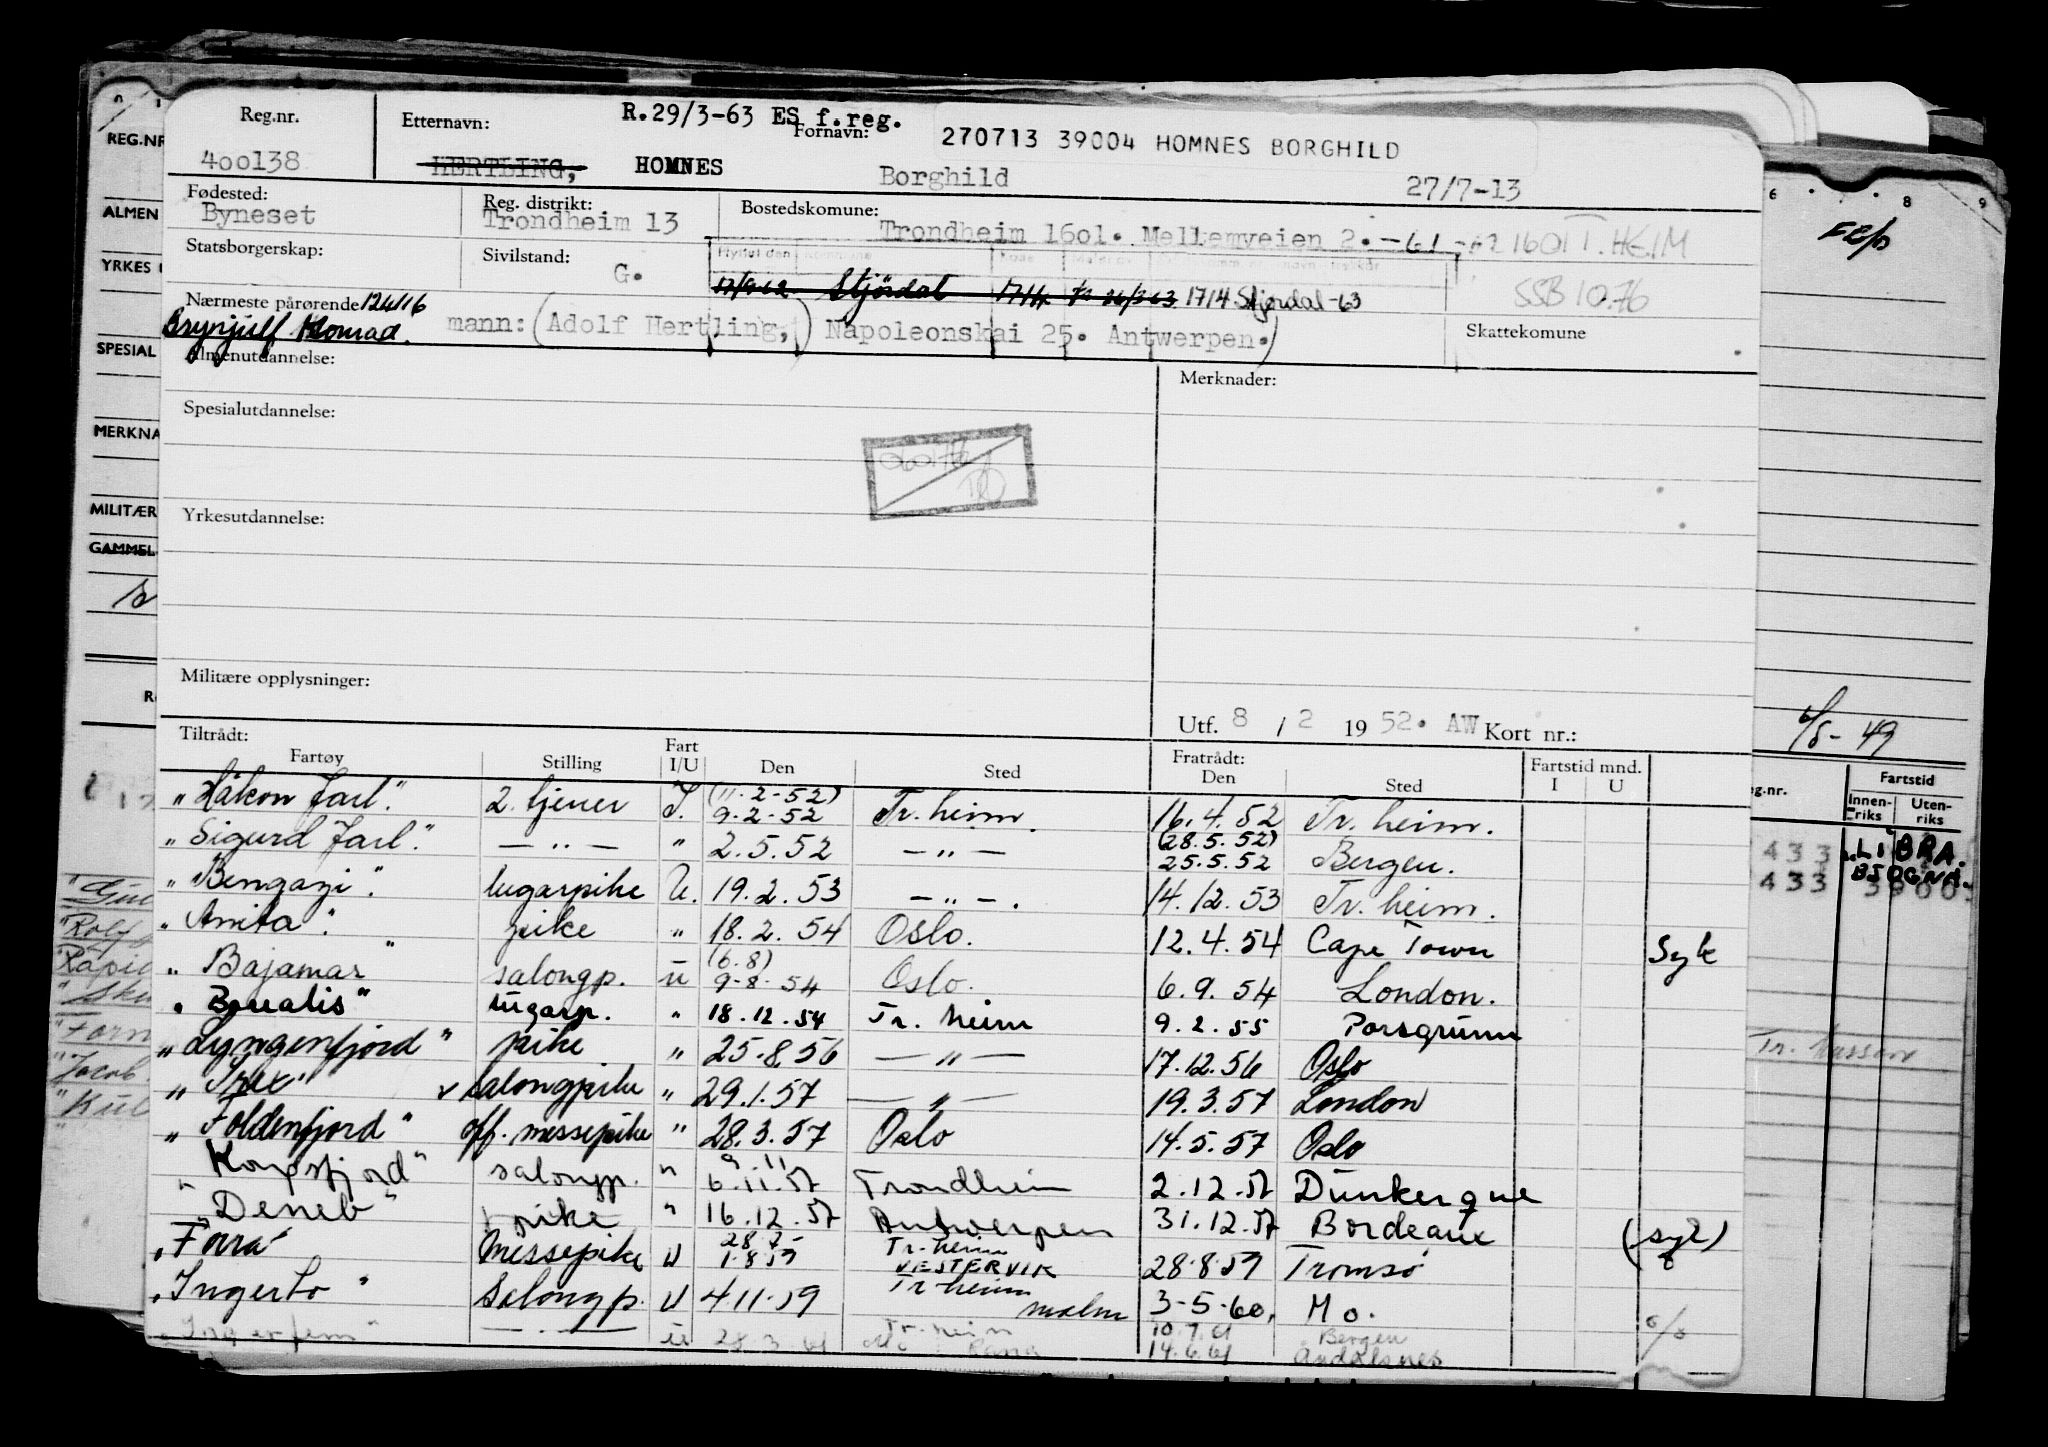 R.29/3-63 ES f.reg.
270713 39004 HOMNES BORGHILD
Reg.nr. Etternavn: Fornavn:
400138 HERTLING, HOMNES Borghild 27/7-13
Fødested: Reg. distrikt: Bostedskomune:
Byneset Trondheim 13 Trondheim 1601. Mellemveien 2. -61 -62 1601 T.HEIM
Statsborgerskap: Sivilstand: G.
Stjørdal 26/3 63 1714 Stjørdal -63 SSB 10.76
Nærmeste pårørende 124116 Skattekomune
Brynjulf Konrad. mann: (Adolf Hertling,) Napoleonskai 25. Antwerpen.)
Almenutdannelse: Merknader:
Spesialutdannelse:
Yrkesutdannelse:
Militære opplysninger:
Utf. 8 / 2 1952. AW Kort nr.:
Tiltrådt: Fratrådt:
Fartøy Stilling Fart I/U Den Sted Den Sted Fartstid mnd. I U
"Håkon Jarl". 2. tjener I. (11.2-52) 9.2-52 Tr. heim. 16.4.52 Tr. heim.
"Sigurd Jarl". — " — " 2.5.52 — " — (28.5.52) 25.5.52 Bergen.
"Bengazi". lugarpike U. 19.2.53 — " —. 14.12.53 Tr. heim.
"Anita". pike " 18.2.54 Oslo. 12.4.54 Cape Town Syk
"Bajamar" salongp. u (6.8) 9-8.54 Oslo. 6.9.54 London.
"Borealis" lugarp. " 18.12.54 Tr. heim 9.2.55 Porsgrunn
"Lyngenfjord" pike " 25.8.56 — " — 17.12.56 Oslo
"Trix" salongpike " 29.1.57 — " — 19.3.57 London
"Foldenfjord" off. messepike " 28.3.57 Oslo 14.5.57 Oslo
"Korsfjord" salongp. " 9 11 6.11.57 Trondheim 2.12.57 Dunkerque
"Deneb" pike " 16.12.57 Antwerpen 31.12.57 Bordeaux (syk)
"Forra" Messepike U 28.7 1.8.59 Tr-heim VESTERVIK 28.8.59 Tromsø
"Ingerto" Salongp. U 4.11.59 Tr-heim malm 3-5-60, Mo. o/o
"Ingerfem" — . — u 28.3.61 Tr. heim Mo i Rana 10.7.61 14.6.61 Bergen Åndalsnes
REG.NR
ALMEN
YRKES
SPESIAL
MERKNA
MILITÆR
GAMMEL
6 8 9
6/8-49
g.nr. Fartstid
Innenriks Utenriks
433 LIBRA.
433
"Roly
Rapid
"Forn
"Jacob